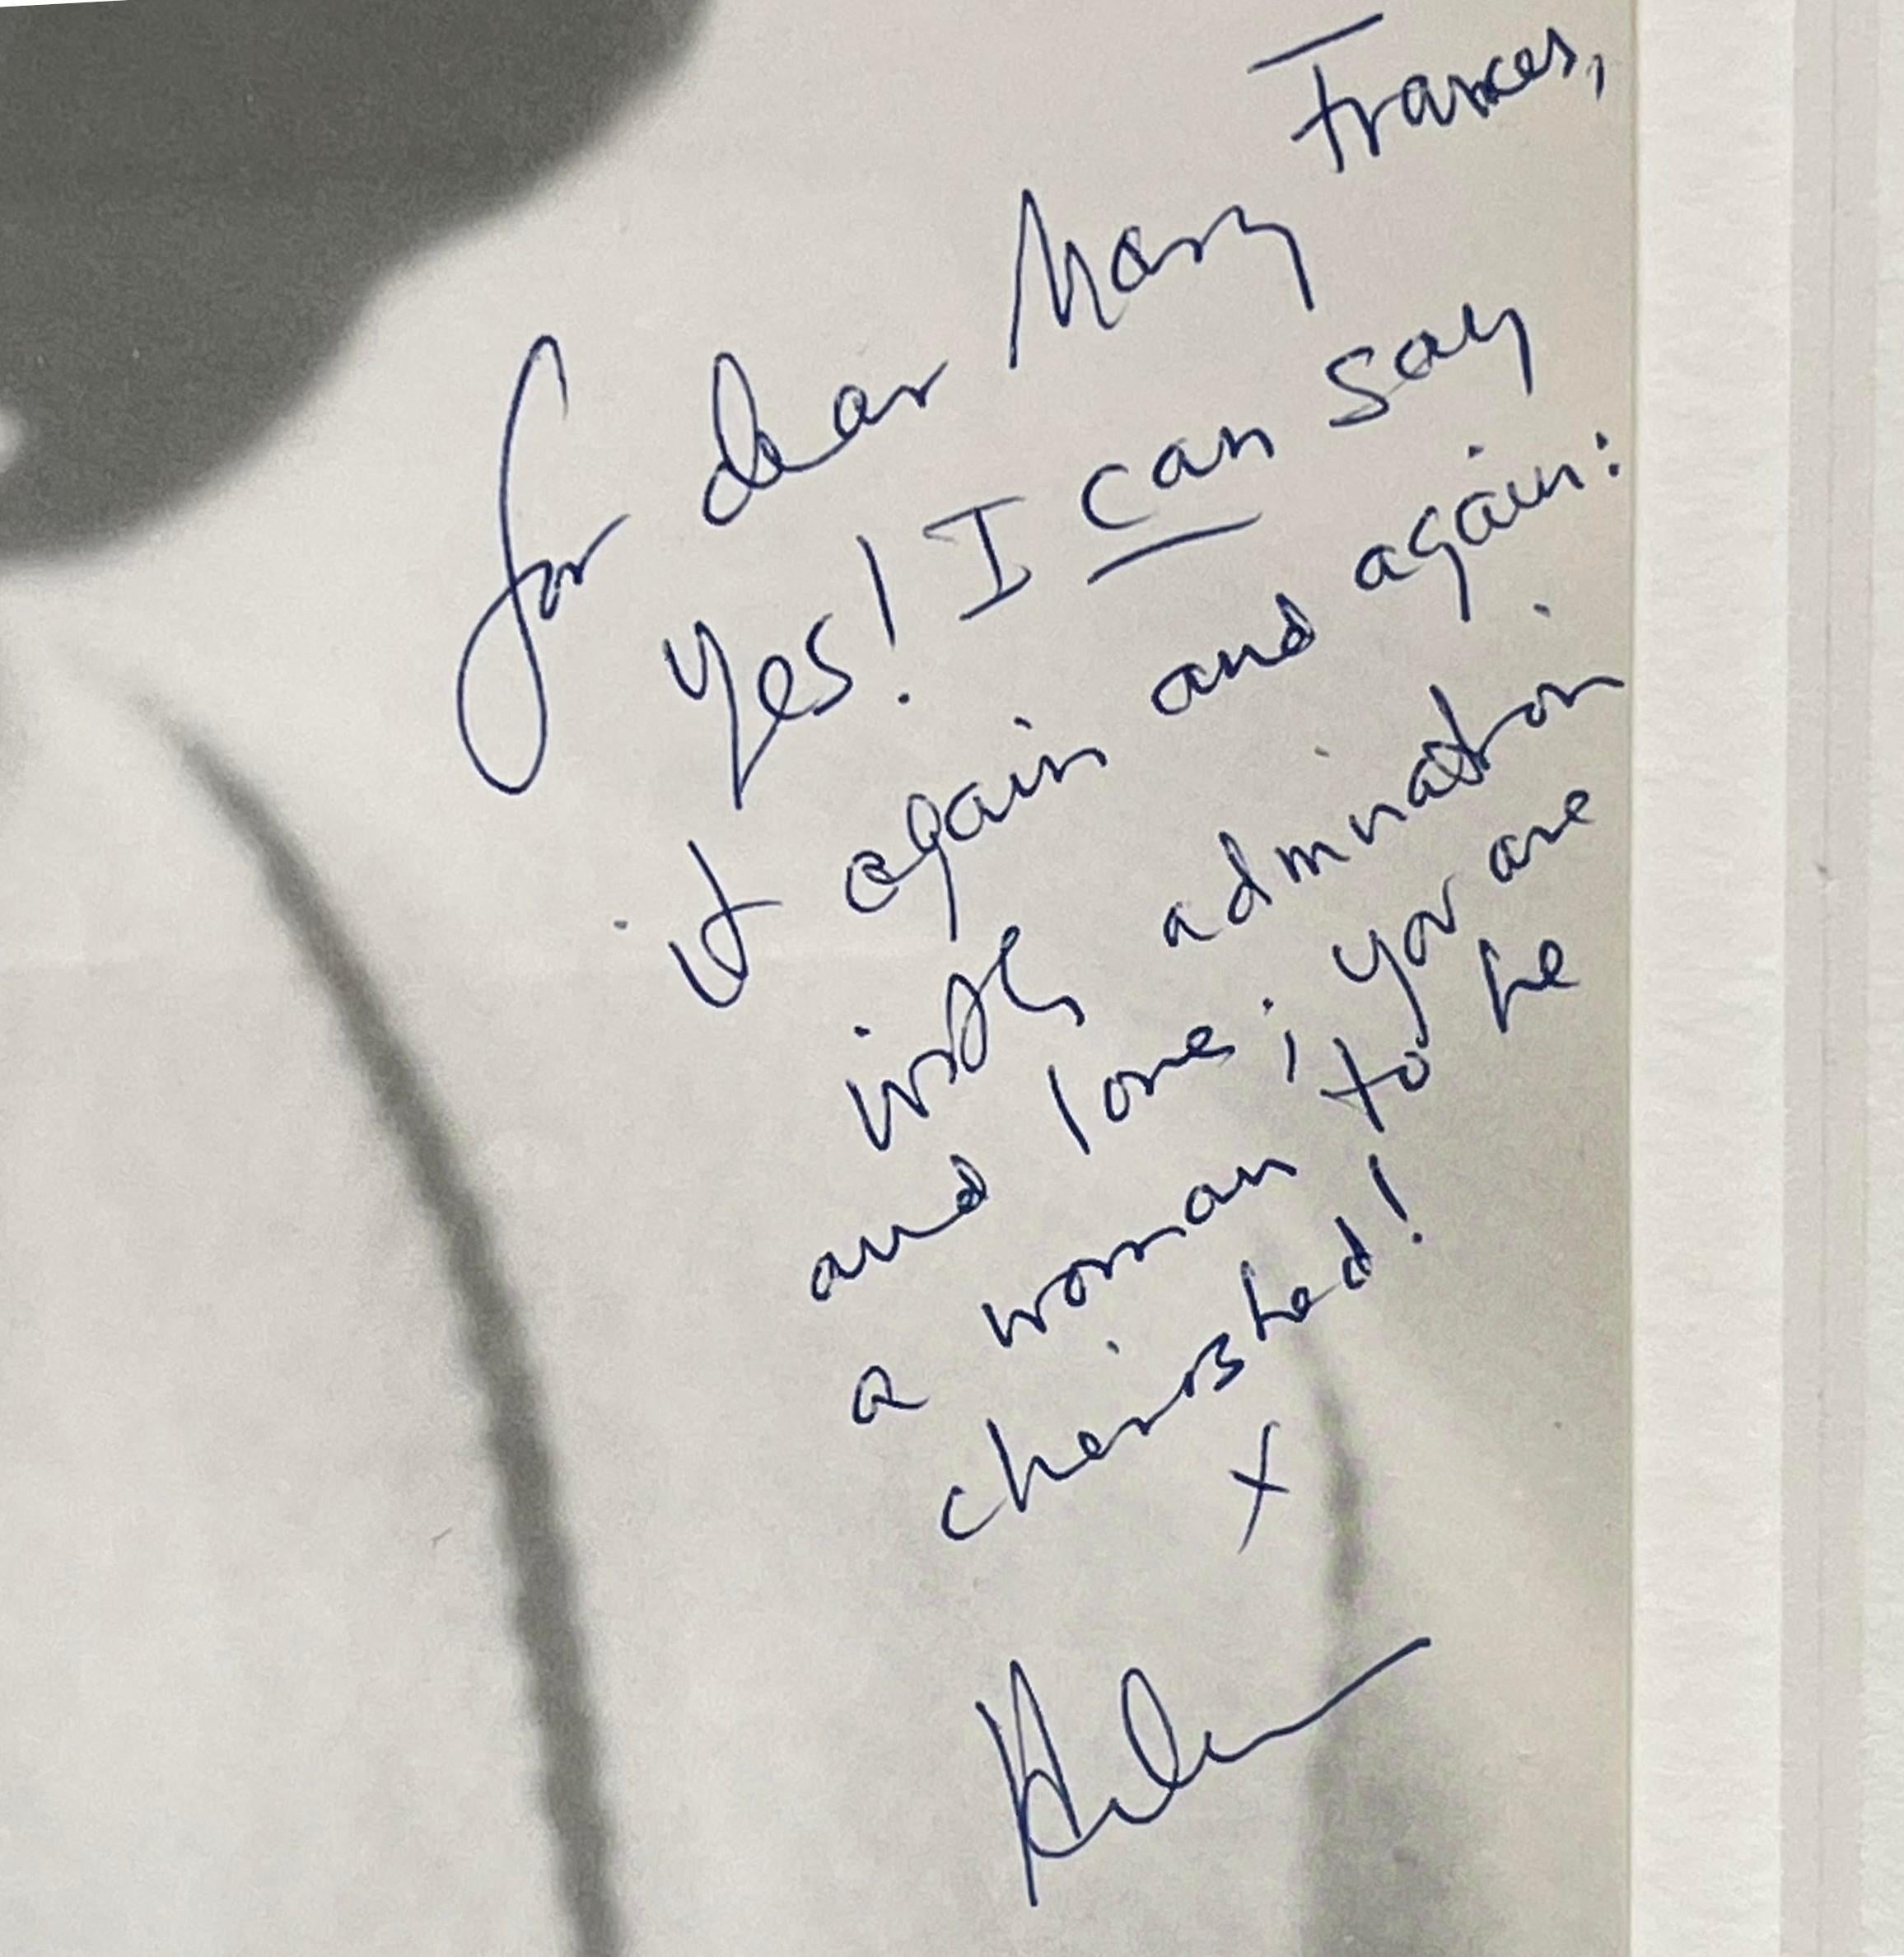 for dear Mary Frances,
Yes! I can say
it again and again:
with admiration
and love; you are
a woman to be
cherished!
x
Helen